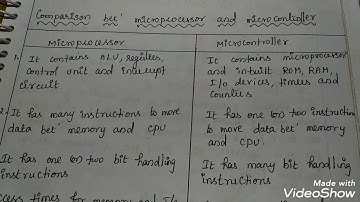 Comparison bet' microprocessor and microcontroller
Microprocessor
Microcontroller
1. It contains ALU, registers,
control unit and interrupt
circuit
It contains microprocessor
and inbuilt ROM, RAM,
I/o devices, timers and
counters
2. It has many instructions to move
data bet' memory and CPU
It has one (or) two instruction
to move data bet' memory
and CPU.
It has one (or) two bit handling
instructions
It has many bit handling
instructions
times for memory and I/o
Made with
VideoShow